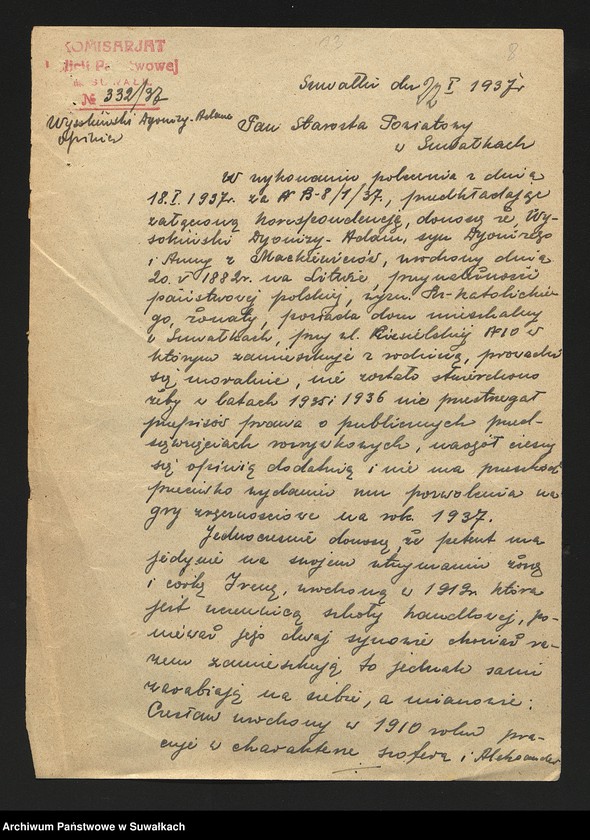 KOMISARJAT
Policji Państwowej
№ 332/37
Wysokiński Dyonizy-Adam
opinia
8
Suwałki dn. I 1937 r
Pan Starosta Powiatowy
w Suwałkach
W wykonaniu polecenia z dnia
18.I.1937r. za № B-8/1/37, przedkładając
załączoną korespondencję, donoszę że, Wy-
sokiński Dyonizy-Adam, syn Dyonizego
i Anny z Mackiewiczów, urodzony dnia
20.V.1882r. na Litwie, przynależności
państwowej polskiej, wyzn. Rz-katolickie-
go, żonaty, posiada dom mieszkalny
w Suwałkach, przy ul. Ciesielskiej №10 w
którym zamieszkuje z rodziną, prowadzi
się moralnie, nie zostało stwierdzono
żeby w latach 1935 i 1936 nie przestrzegał
przepisów prawa o publicznych przed-
sięwzięciach rozrywkowych, naogół cieszy
się opinią dodatnią i nie ma przeszkód
przeciwko wydaniu mu pozwolenia na
gry zręcznościowe na rok 1937.
Jednocześnie donoszę, że petent ma
jedynie na swojem utrzymaniu żonę
i córkę Irenę, urodzoną w 1919r. która
jest uczennicą szkoły handlowej, po-
nieważ jego dwaj synowie chociaż ra-
zem zamieszkują to jednak sami
zarabiają na siebie, a mianowicie:
Czesław urodzony w 1910 roku pra-
cuje w charakterze szofera i Aleksander
Archiwum Państwowe w Suwałkach